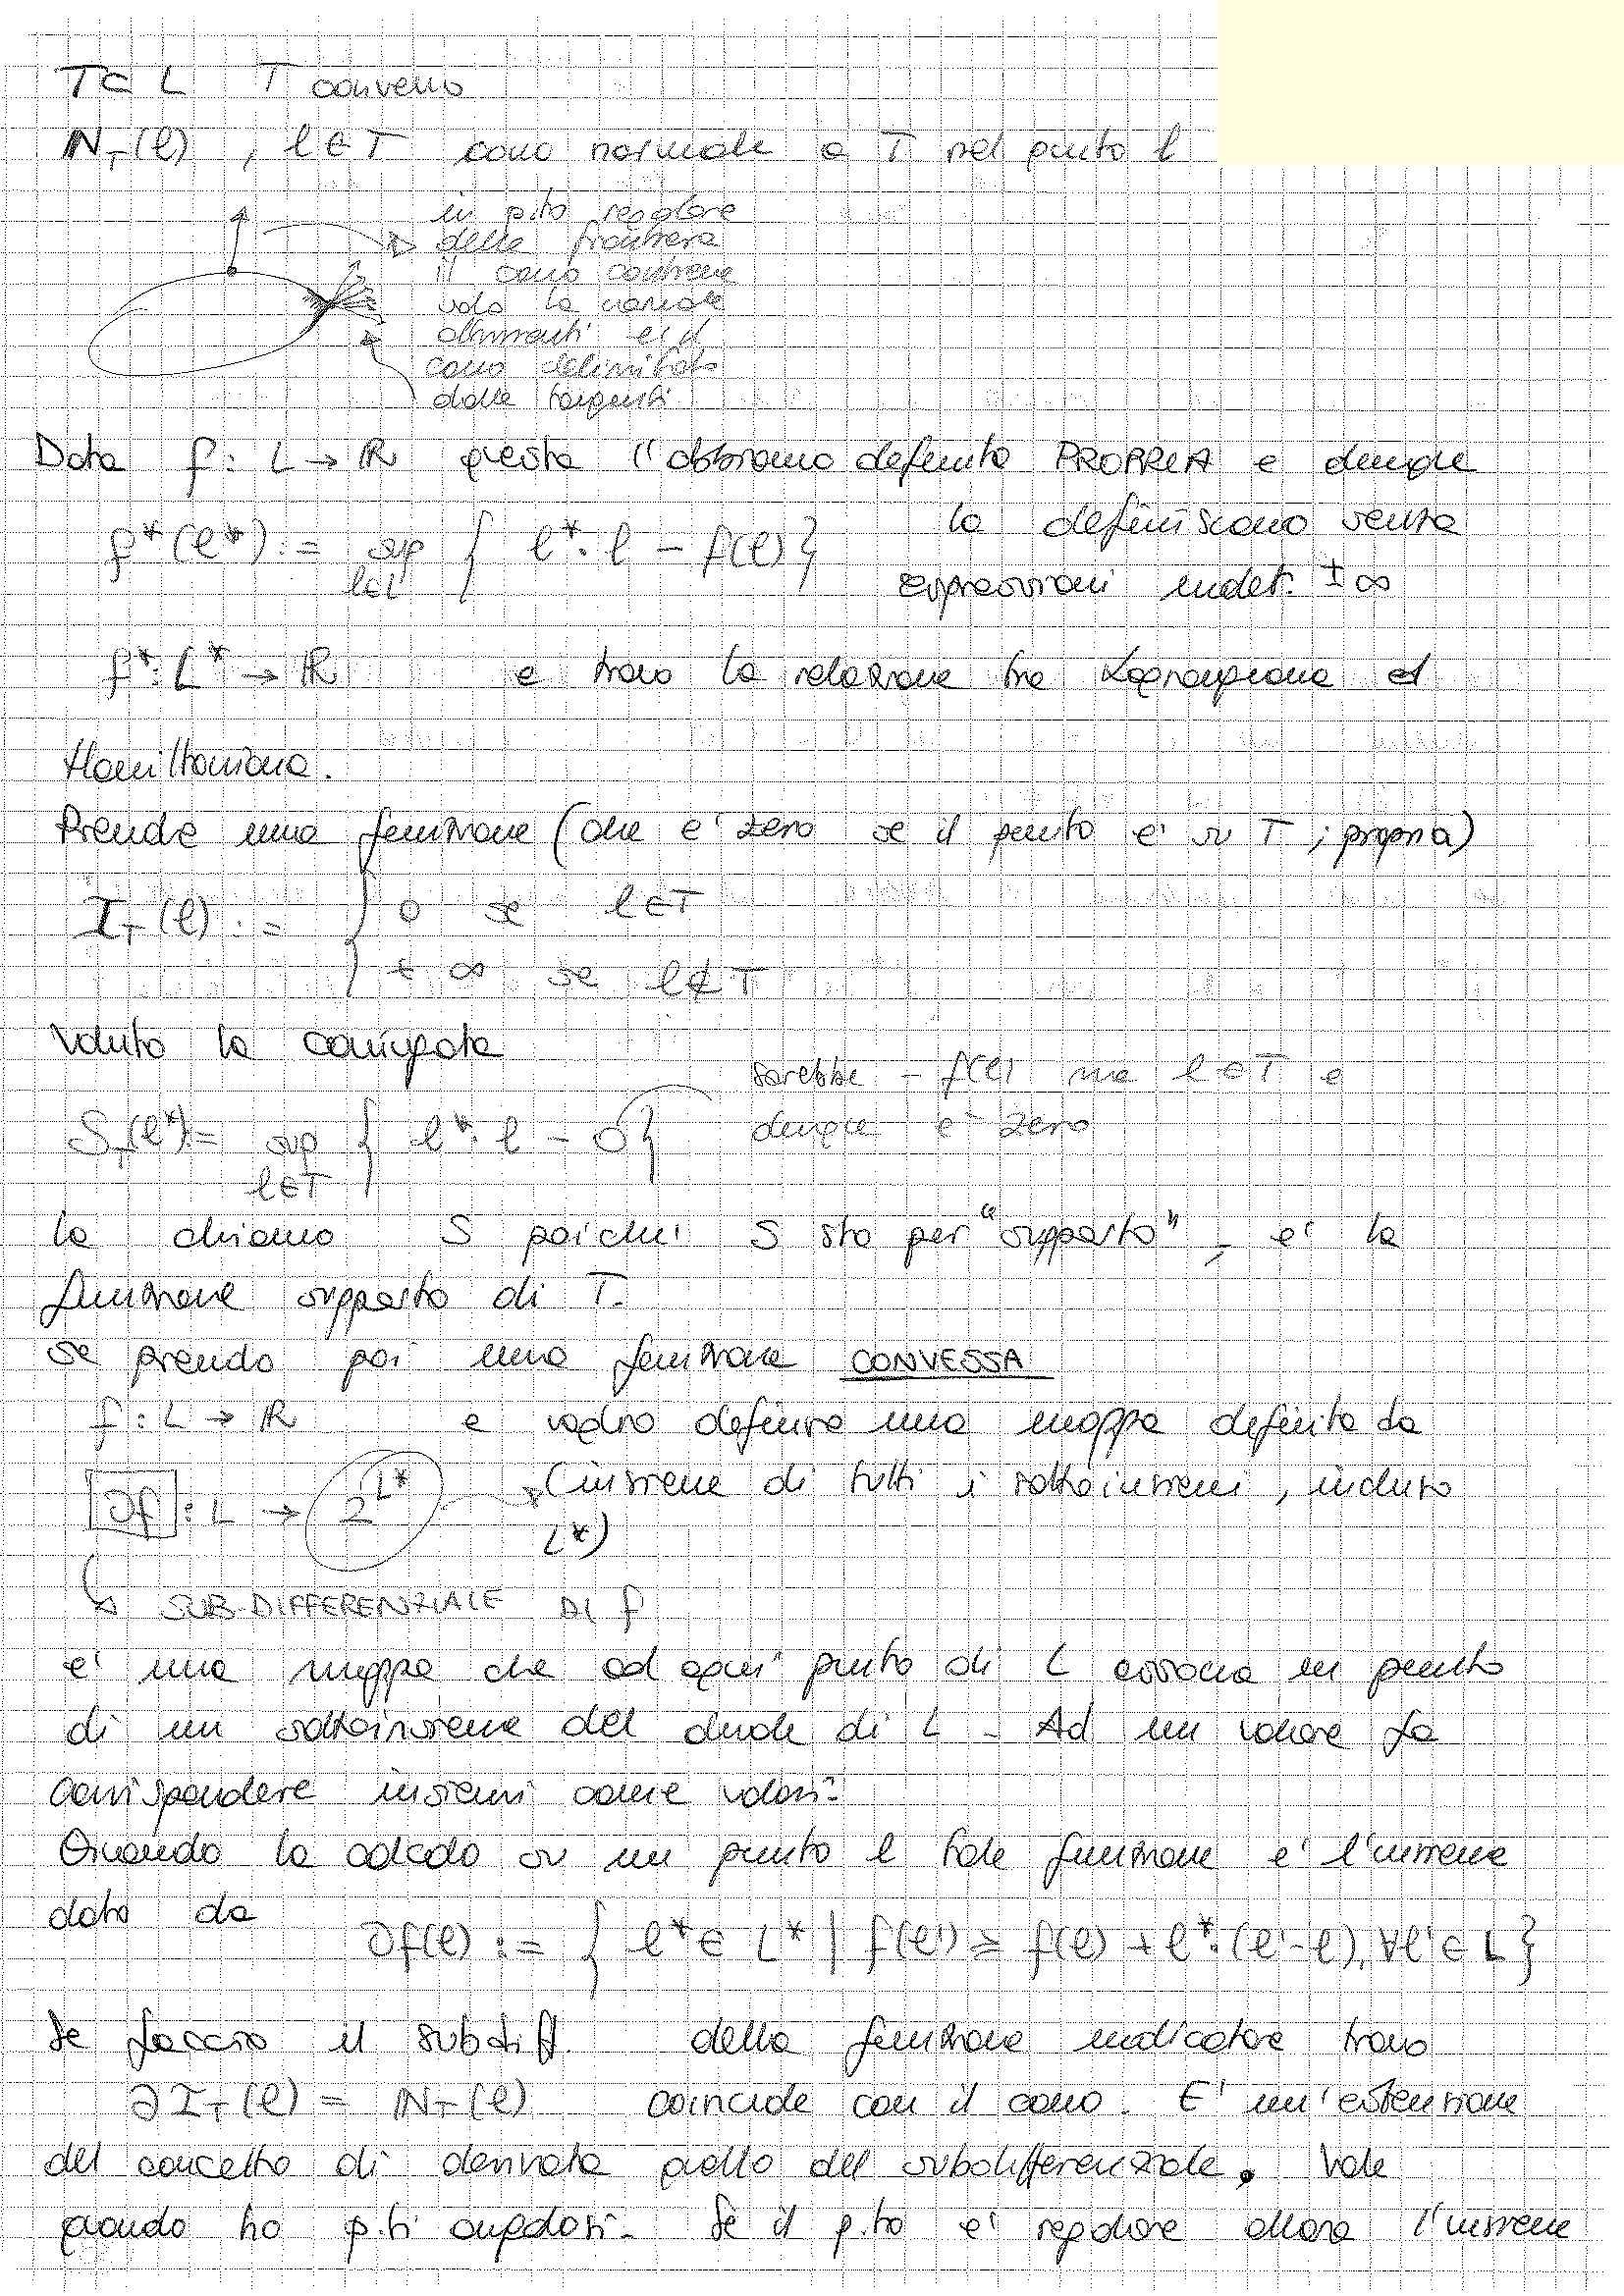 T ⊂ L T convesso
N_T(l) , l ∈ T cono normale a T nel punto l
in p.to regolare
della frontiera
il cono contiene
solo la normale
altrimenti e' il
cono delimitato
dalle tangenti.
Data f : L → ℝ questa l'abbiamo definita PROPRIA e dunque
f*(l*) := sup { l*·l − f(l) } la definiscono senza
l∈L espressioni indet. ±∞
f* : L* → ℝ e trovo la relazione tra Lagrangiana ed
Hamiltoniana.
Prendo una funzione (che e' zero se il punto e' su T ; propria)
I_T(l) := { 0 se l ∈ T
+ ∞ se l ∉ T
Valuto la coniugata
sarebbe − f(l) ma l ∈ T e
S_T(l*) := sup { l*·l − 0 } dunque e' zero
l∈T
la chiamo S poiche' S sta per "supporto", e' la
funzione supporto di T.
se prendo poi una funzione CONVESSA
f : L → ℝ e voglio definire una mappa definita da
∂f : L → 2^{L*} (insieme di tutti i sottoinsiemi, incluso
L*)
SUB-DIFFERENZIALE DI f
e' una mappa che ad ogni punto di L associa un punto
di un sottoinsieme del duale di L - Ad un valore fa
corrispondere insiemi come valori.
Quando la calcolo su un punto l tale funzione e' l'insieme
dato da
∂f(l) := { l* ∈ L* | f(l') ≥ f(l) + l*·(l'-l), ∀l' ∈ L }
Se faccio il subdiff. della funzione indicatore trovo
∂I_T(l) = N_T(l) coincide con il cono. E' un'estensione
del concetto di derivata quello del subdifferenziale. Vale
quando ho p.ti angolosi. Se il p.to e' regolare allora l'insieme